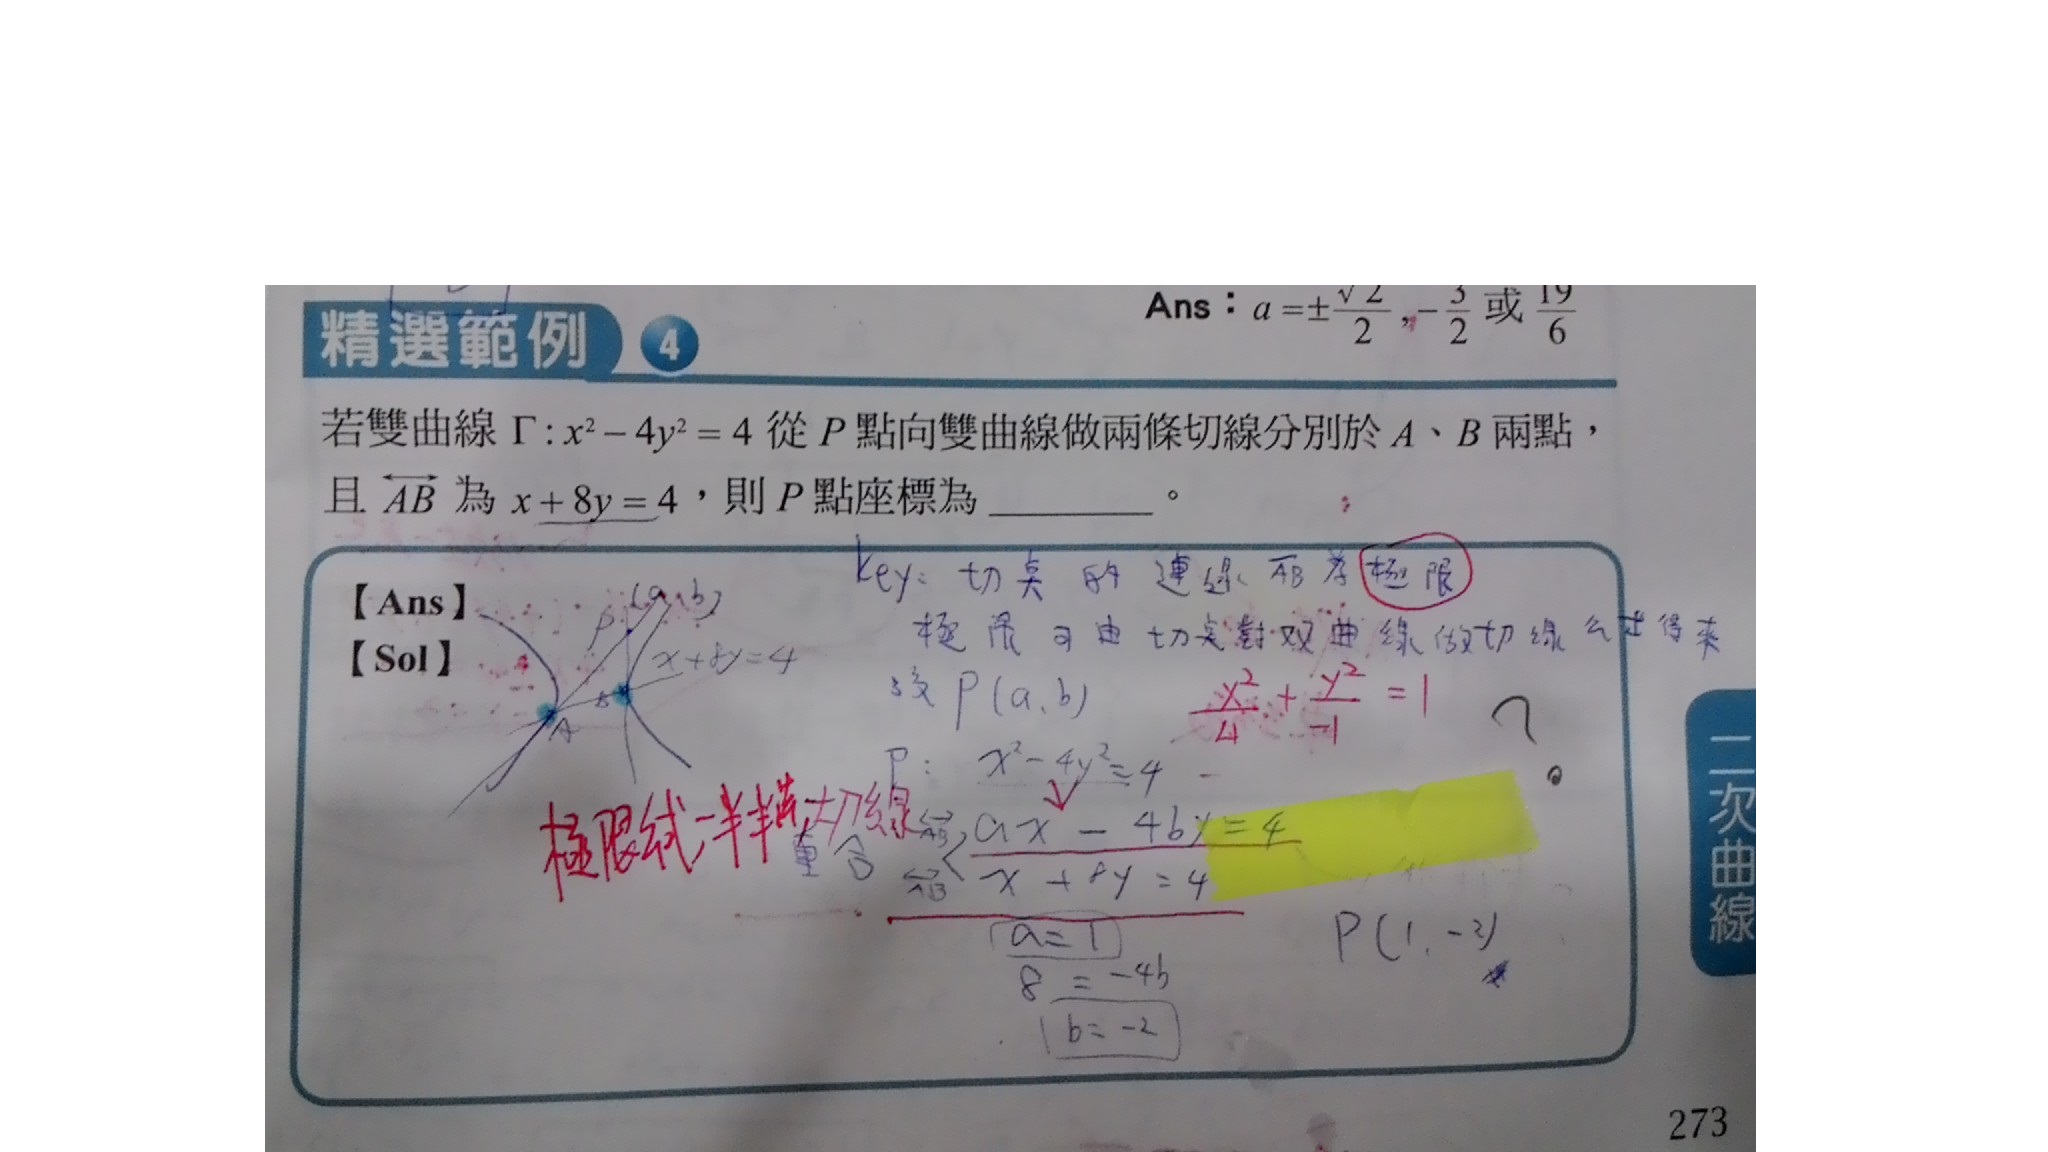 Ans：a = ± √2/2 , − 3/2 或 19/6
精選範例 4
若雙曲線 Γ : x² − 4y² = 4 從 P 點向雙曲線做兩條切線分別於 A、B 兩點，
且 AB 為 x + 8y = 4，則 P 點座標為 ________ 。
【Ans】
【Sol】
P (a,b)
x+8y=4
A
B
key: 切點的連線 AB 為 極限
極限可由切點對双曲線做切線公式得來
設 P(a,b)
x²/4 + y²/-1 = 1
?
Γ: x² − 4y² = 4
極限式,半半切線
重合
AB ax − 4by = 4
AB x + 8y = 4
a = 1
8 = −4b
b = −2
P(1, −2)
二次曲線
273